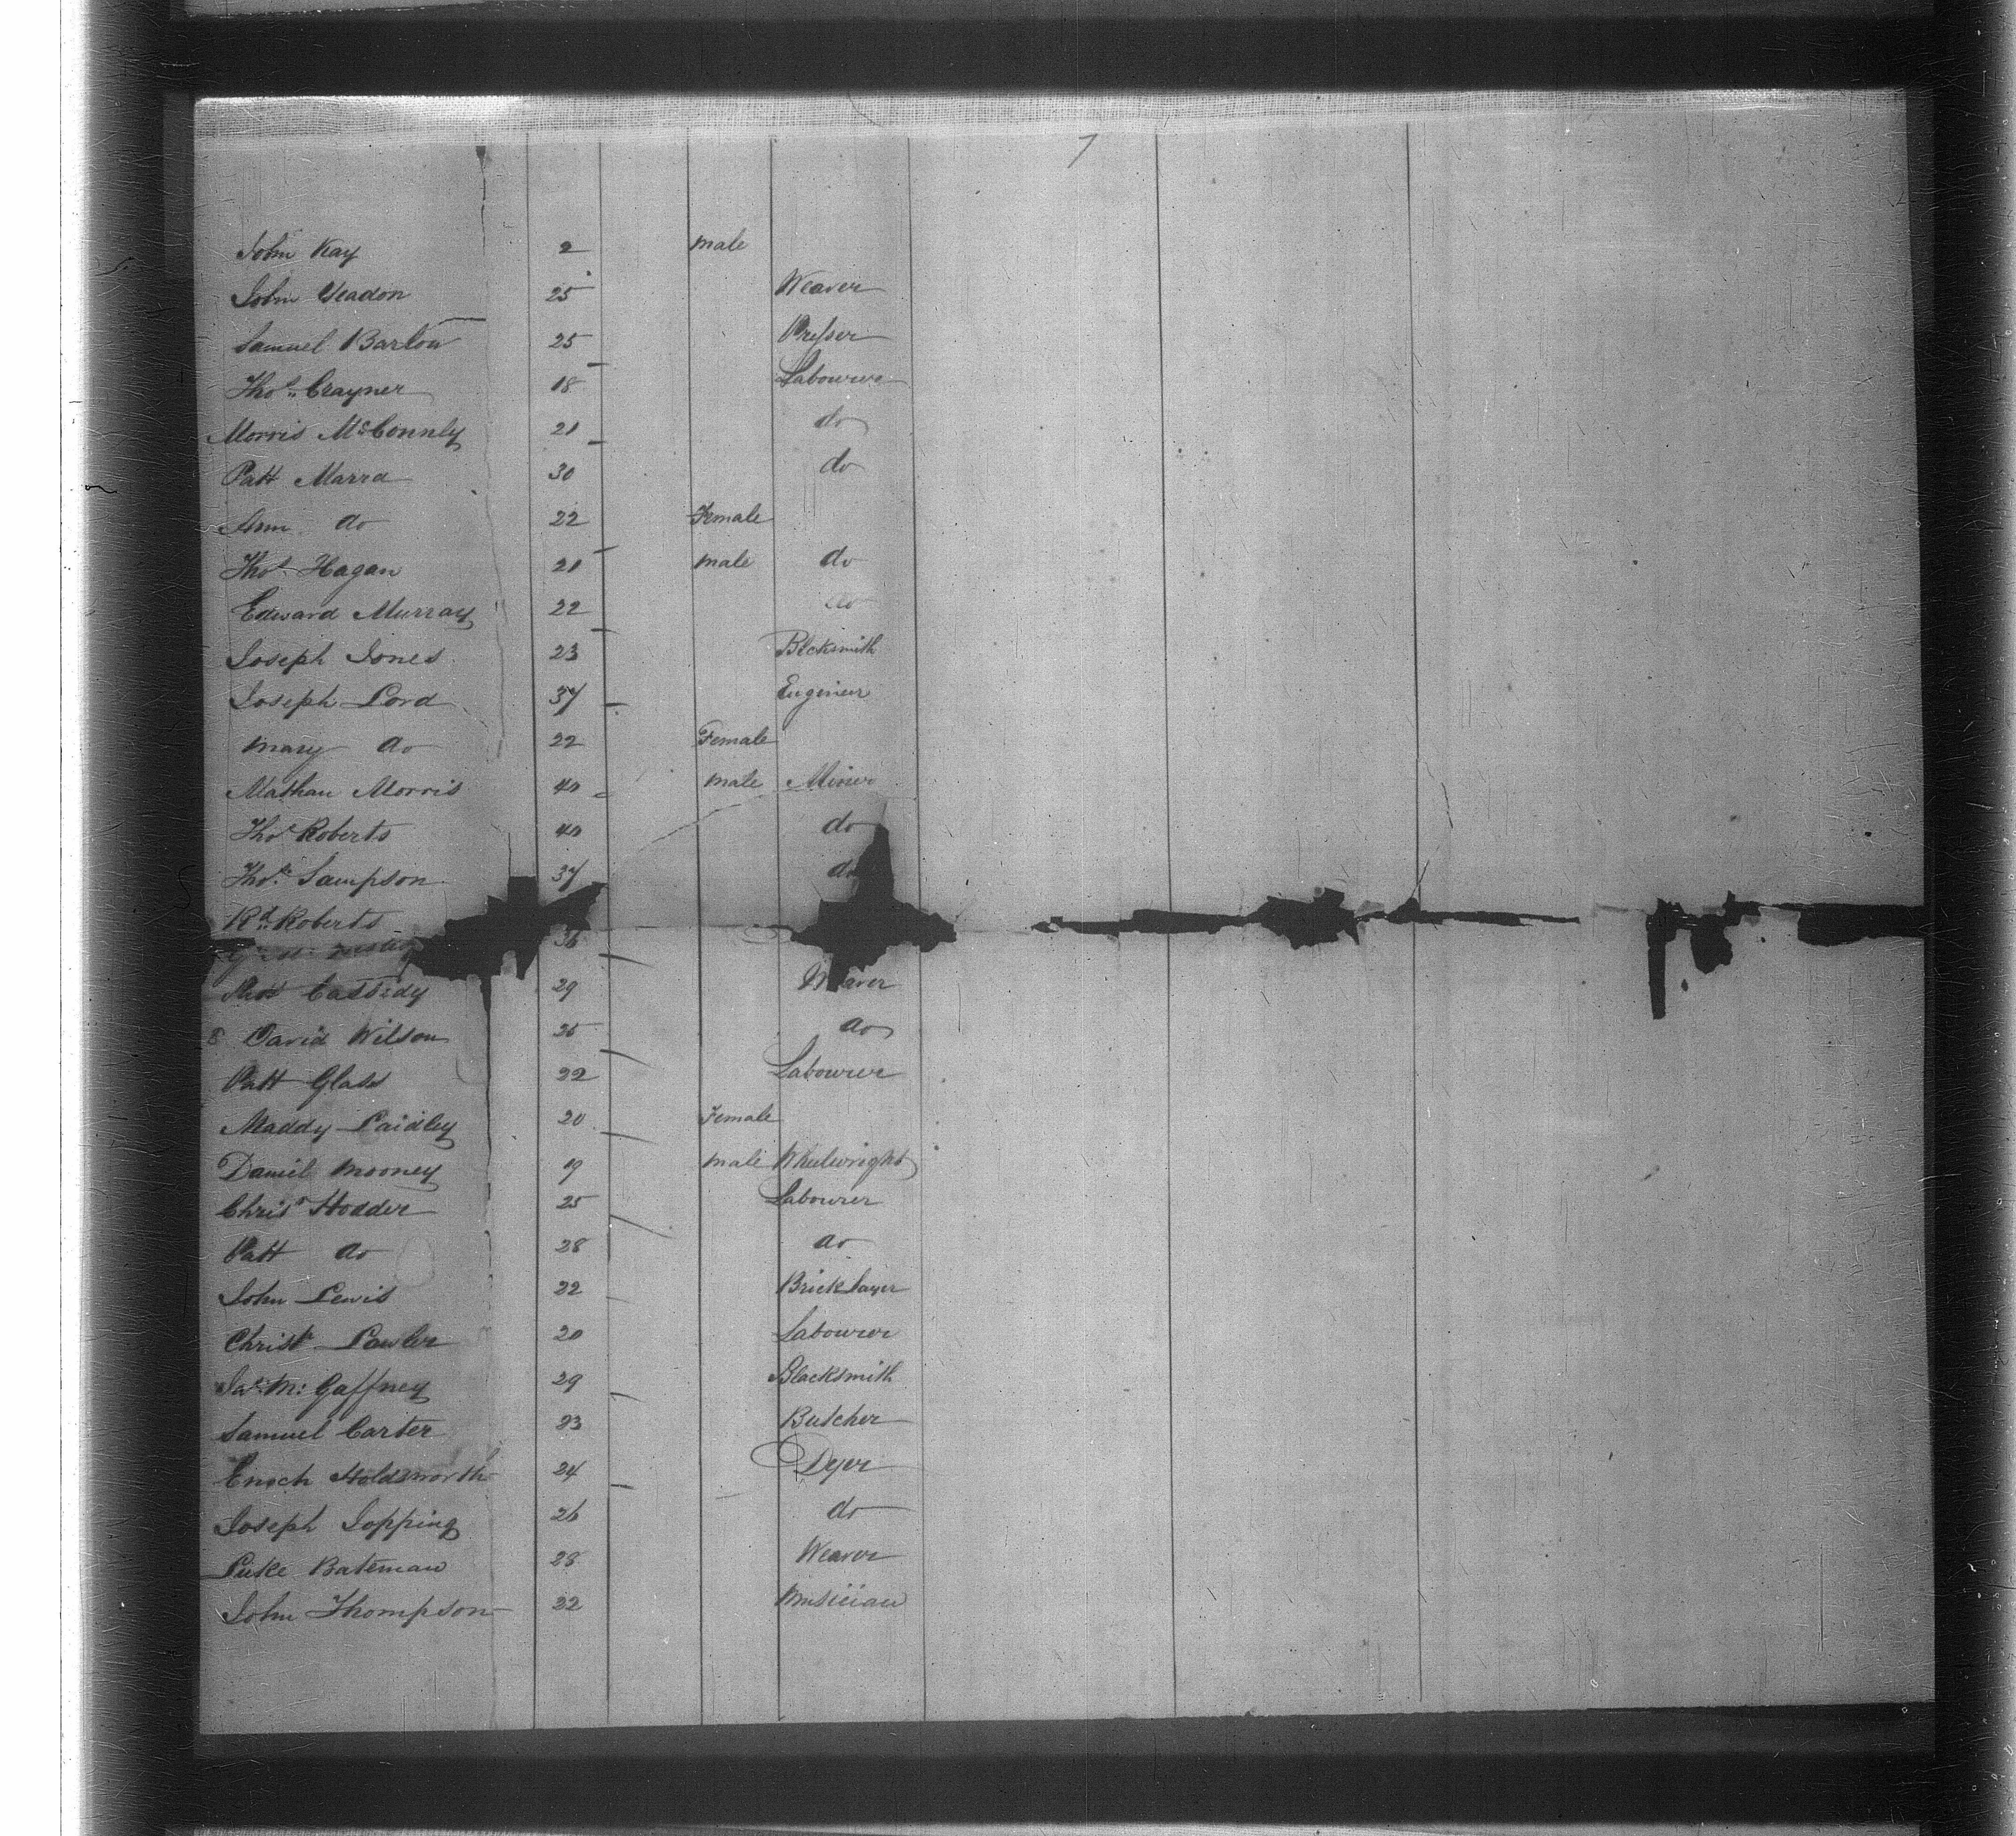 7
John Kay 2 male
John Yeadon 25 Weaver
Samuel Barlow 25 Presser
Thos. Crayner 18 Labourer
Morris McConnly 21 do
Patt Marra 30 do
Ann do 22 Female
Thos. Hagan 21 male do
Edward Murray 22 do
Joseph Jones 23 Blcksmith
Joseph Lord 37 Engineer
Mary do 22 Female
Nathan Morris 40 male Miner
Thos. Roberts 40 do
Thos. Sampson 37 do
Rd. Roberts
36
Thos Cassidy 29 Weaver
8 David Wilson 25 do
Patt Glass 22 Labourer
Maddy Laidley 20 Female
Daniel Mooney 19 male Wheelwright
Chrisr Hodder 25 Labourer
Patt do 28 do
John Lewis 22 Brick Layer
Christr Lawler 20 Labourer
Jas. Mc Gaffney 29 Blacksmith
Samuel Carter 23 Butcher
Enoch Holdsworth 24 Dyer
Joseph Jopping 26 do
Luke Bateman 28 Weaver
John Thompson 22 Musician